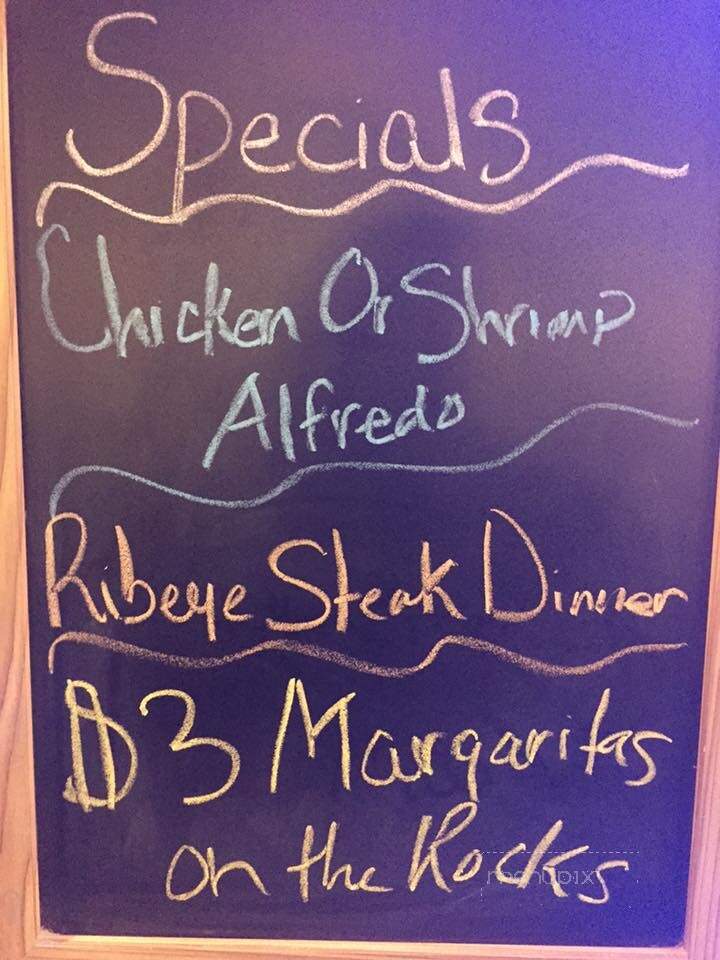 Specials
Chicken Or Shrimp
Alfredo
Ribeye Steak Dinner
$3 Margaritas
on the Rocks
menupix